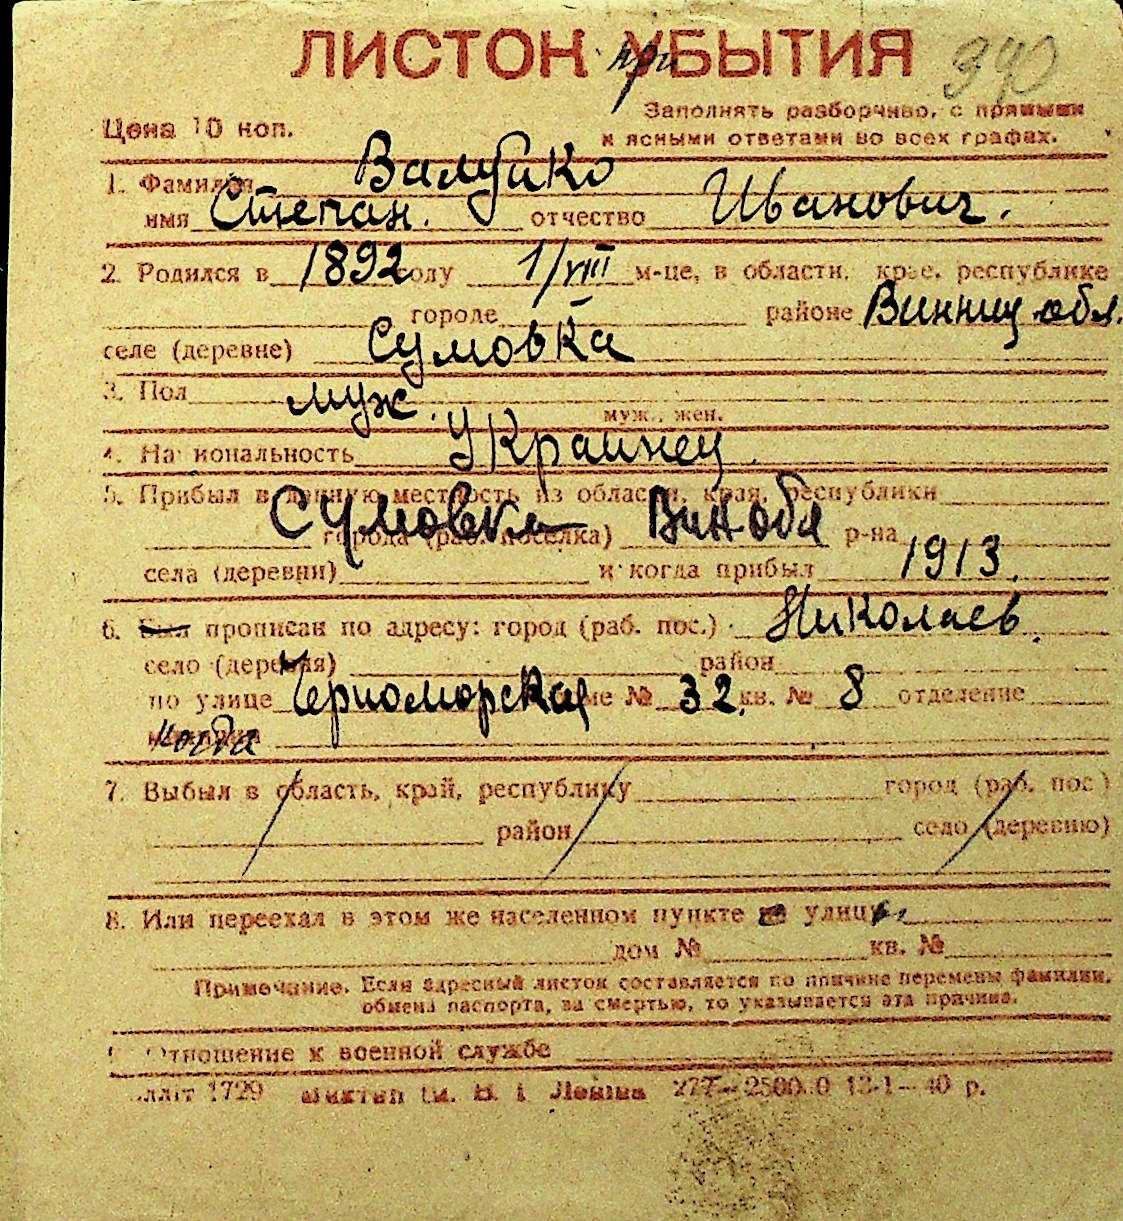 ЛИСТОК приУБЫТИЯ 390
Заполнять разборчиво, с прямыми
Цена 10 коп. и ясными ответами во всех графах.
1. Фамилия Валуйко
имя Степан. отчество Иванович.
2. Родился в 1892 году 1/VIII м-це, в области, крае, республике
городе районе Винниц обл.
селе (деревне) Сумовка
3. Пол муж.
муж., жен.
4. Национальность Украинец.
5. Прибыл в данную местность из области, края, республики
Сумовка города (раб. поселка) Вин обл р-на
села (деревни) и когда прибыл 1913.
6. Был прописан по адресу: город (раб. пос.) Николаев.
село (деревня) район
по улице Черноморская доме № 32, кв. № 8 отделение
когда
7. Выбыл в область, край, республику город (раб. пос.)
район село (деревню)
8. Или переехал в этом же населенном пункте на улицу
дом № кв. №
Примечание. Если адресный листок составляется по причине перемены фамилии,
обмена паспорта, за смертью, то указывается эта причина.
Отношение к военной службе
1729 им. В. І. Леніна 13-1—40 р.